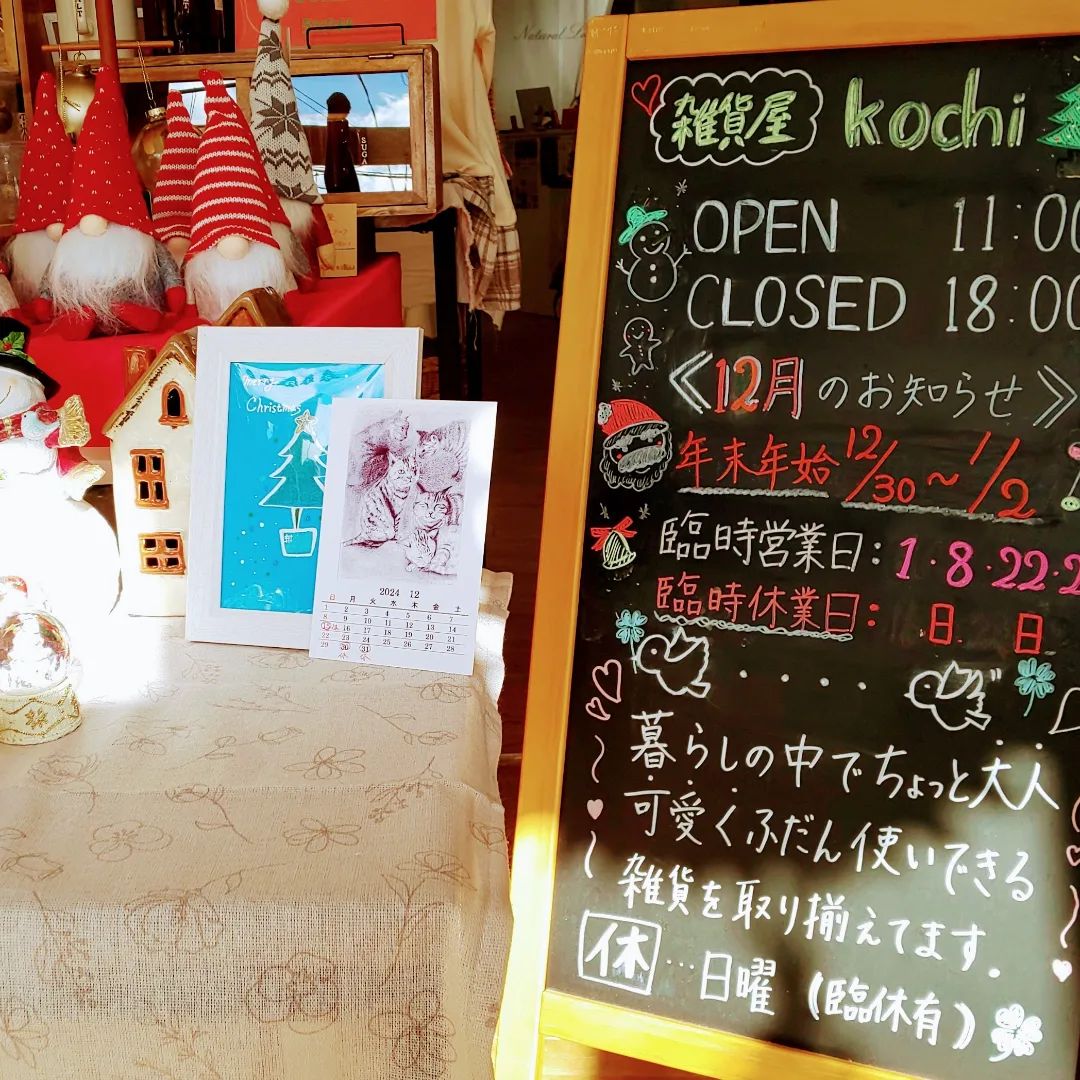 Natural
SUGA
merry
Christmas
2024 12
日 月 火 水 木 金 土
1 2 3 4 5 6 7
8 9 10 11 12 13 14
15 16 17 18 19 20 21
22 23 24 25 26 27 28
29 30 31
休 休
雑貨屋 kochi
OPEN 11:00
CLOSED 18:00
≪12月のお知らせ≫
年末年始 12/30~1/2
臨時営業日: 1・8・22・2
臨時休業日: 日 日
暮らしの中でちょっと大人
可愛くふだん使いできる
雑貨を取り揃えてます.
休…日曜(臨休有)